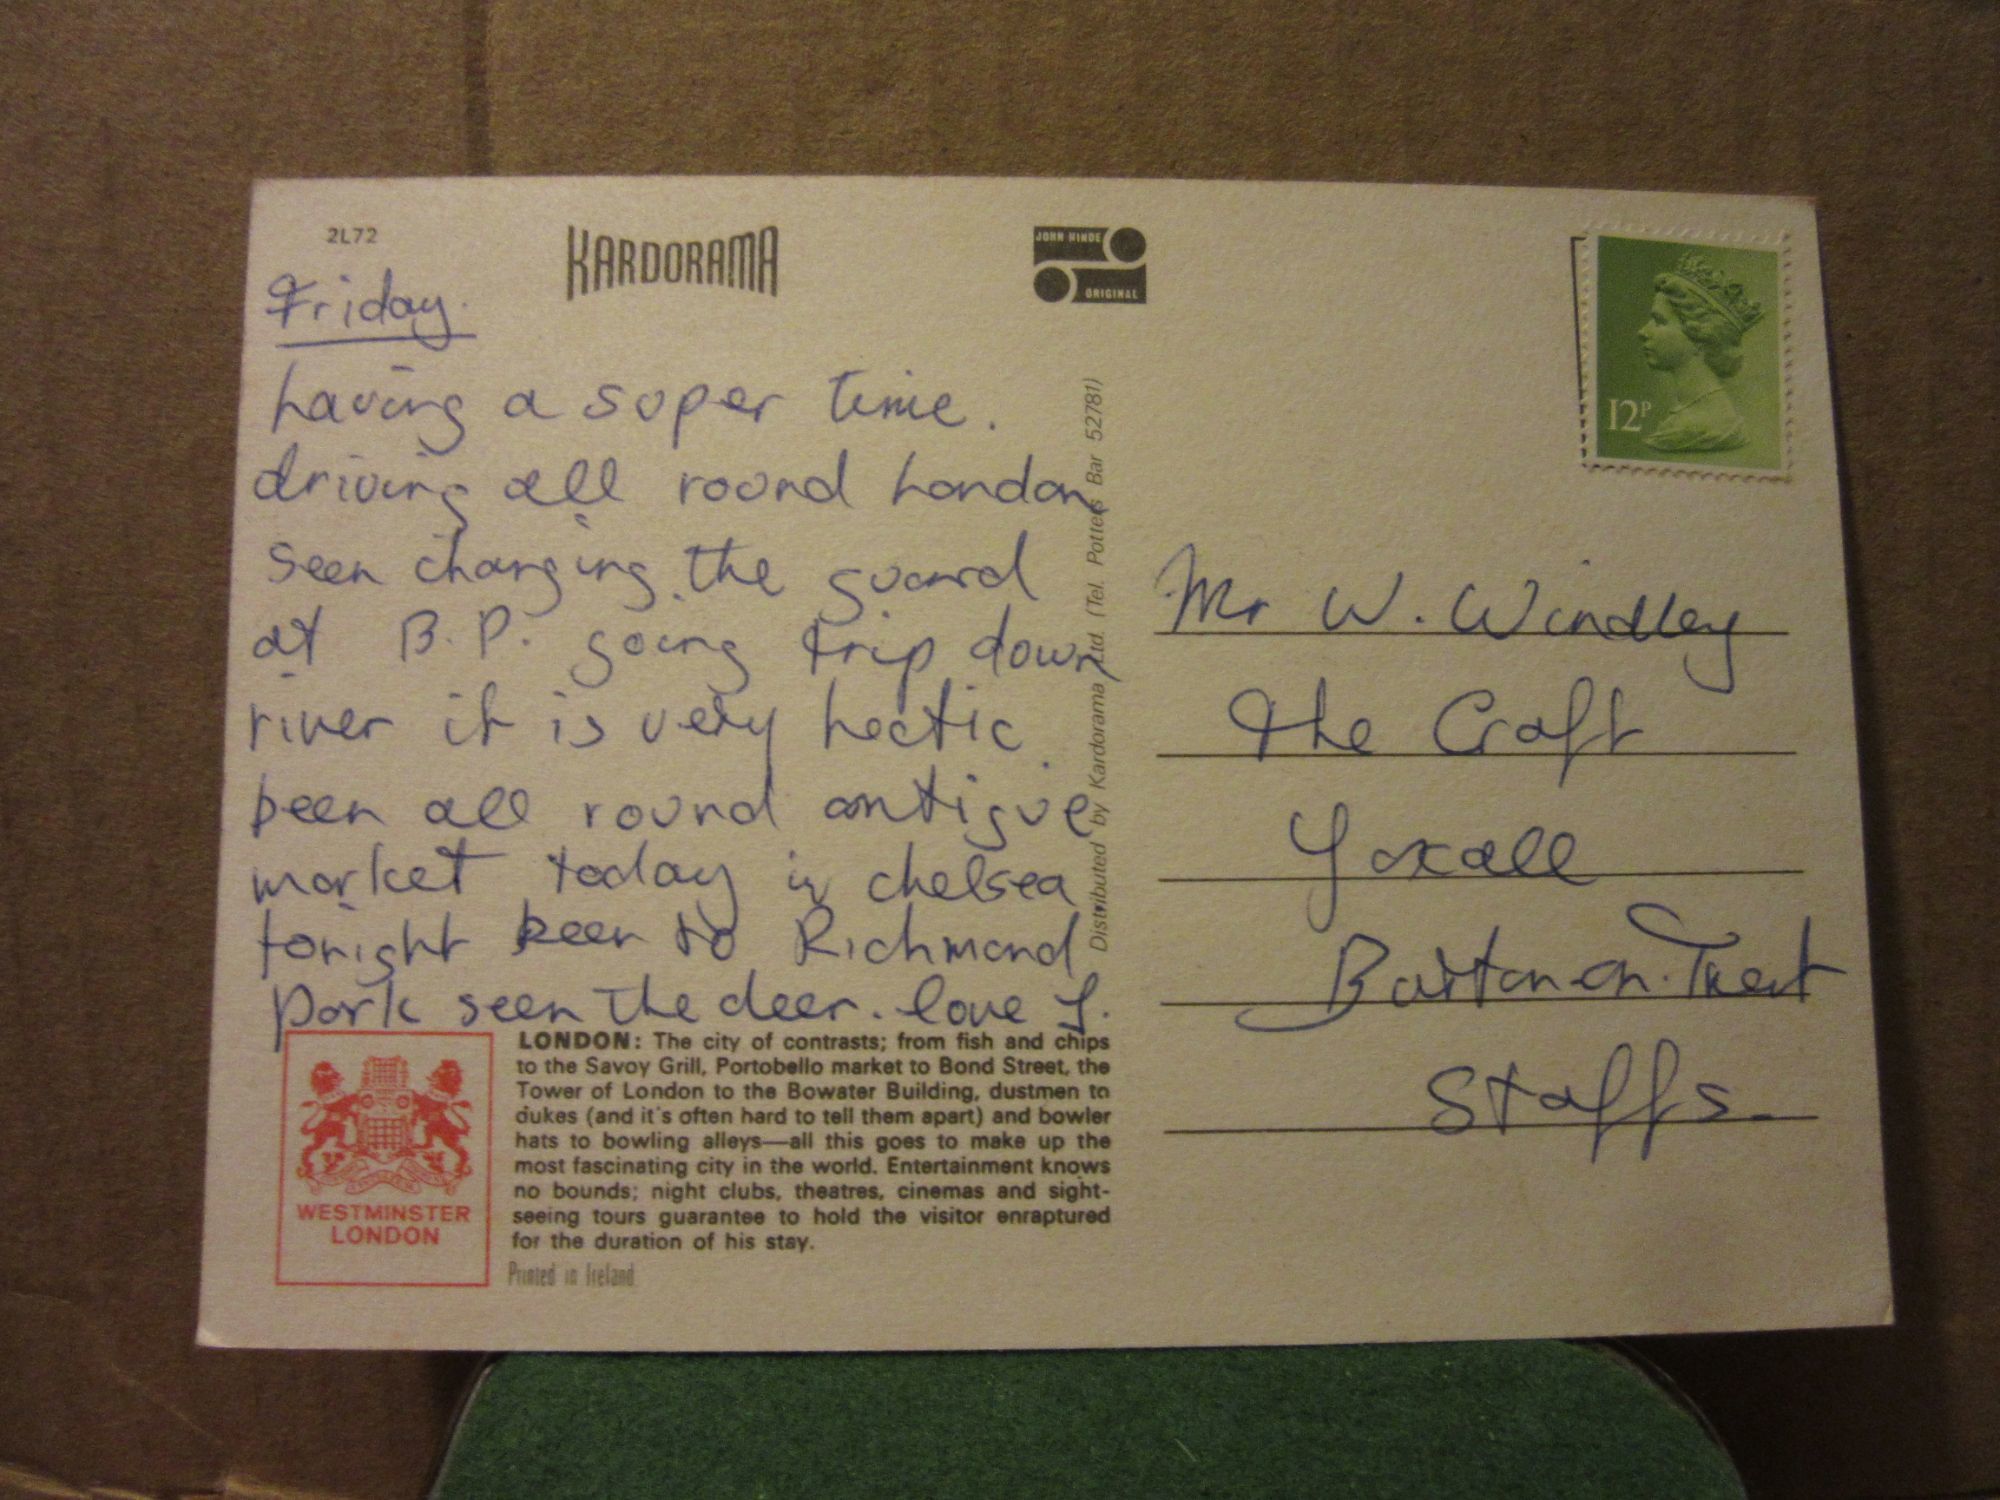 2L72
KARDORAMA
JOHN HINDE
ORIGINAL
12P
Friday.
having a super time.
driving all round London
seen changing the guard
at B.P. going trip down
river it is very hectic.
been all round antique
market today in chelsea
tonight been to Richmond
park seen the deer. love J.
Distributed by Kardorama Ltd. (Tel. Potters Bar 52781)
Mr W. Windley
The Croft
Yoxall
Burton-on-Trent
Staffs.
WESTMINSTER
LONDON
LONDON: The city of contrasts; from fish and chips
to the Savoy Grill, Portobello market to Bond Street, the
Tower of London to the Bowater Building, dustmen to
dukes (and it's often hard to tell them apart) and bowler
hats to bowling alleys—all this goes to make up the
most fascinating city in the world. Entertainment knows
no bounds; night clubs, theatres, cinemas and sight-
seeing tours guarantee to hold the visitor enraptured
for the duration of his stay.
Printed in Ireland